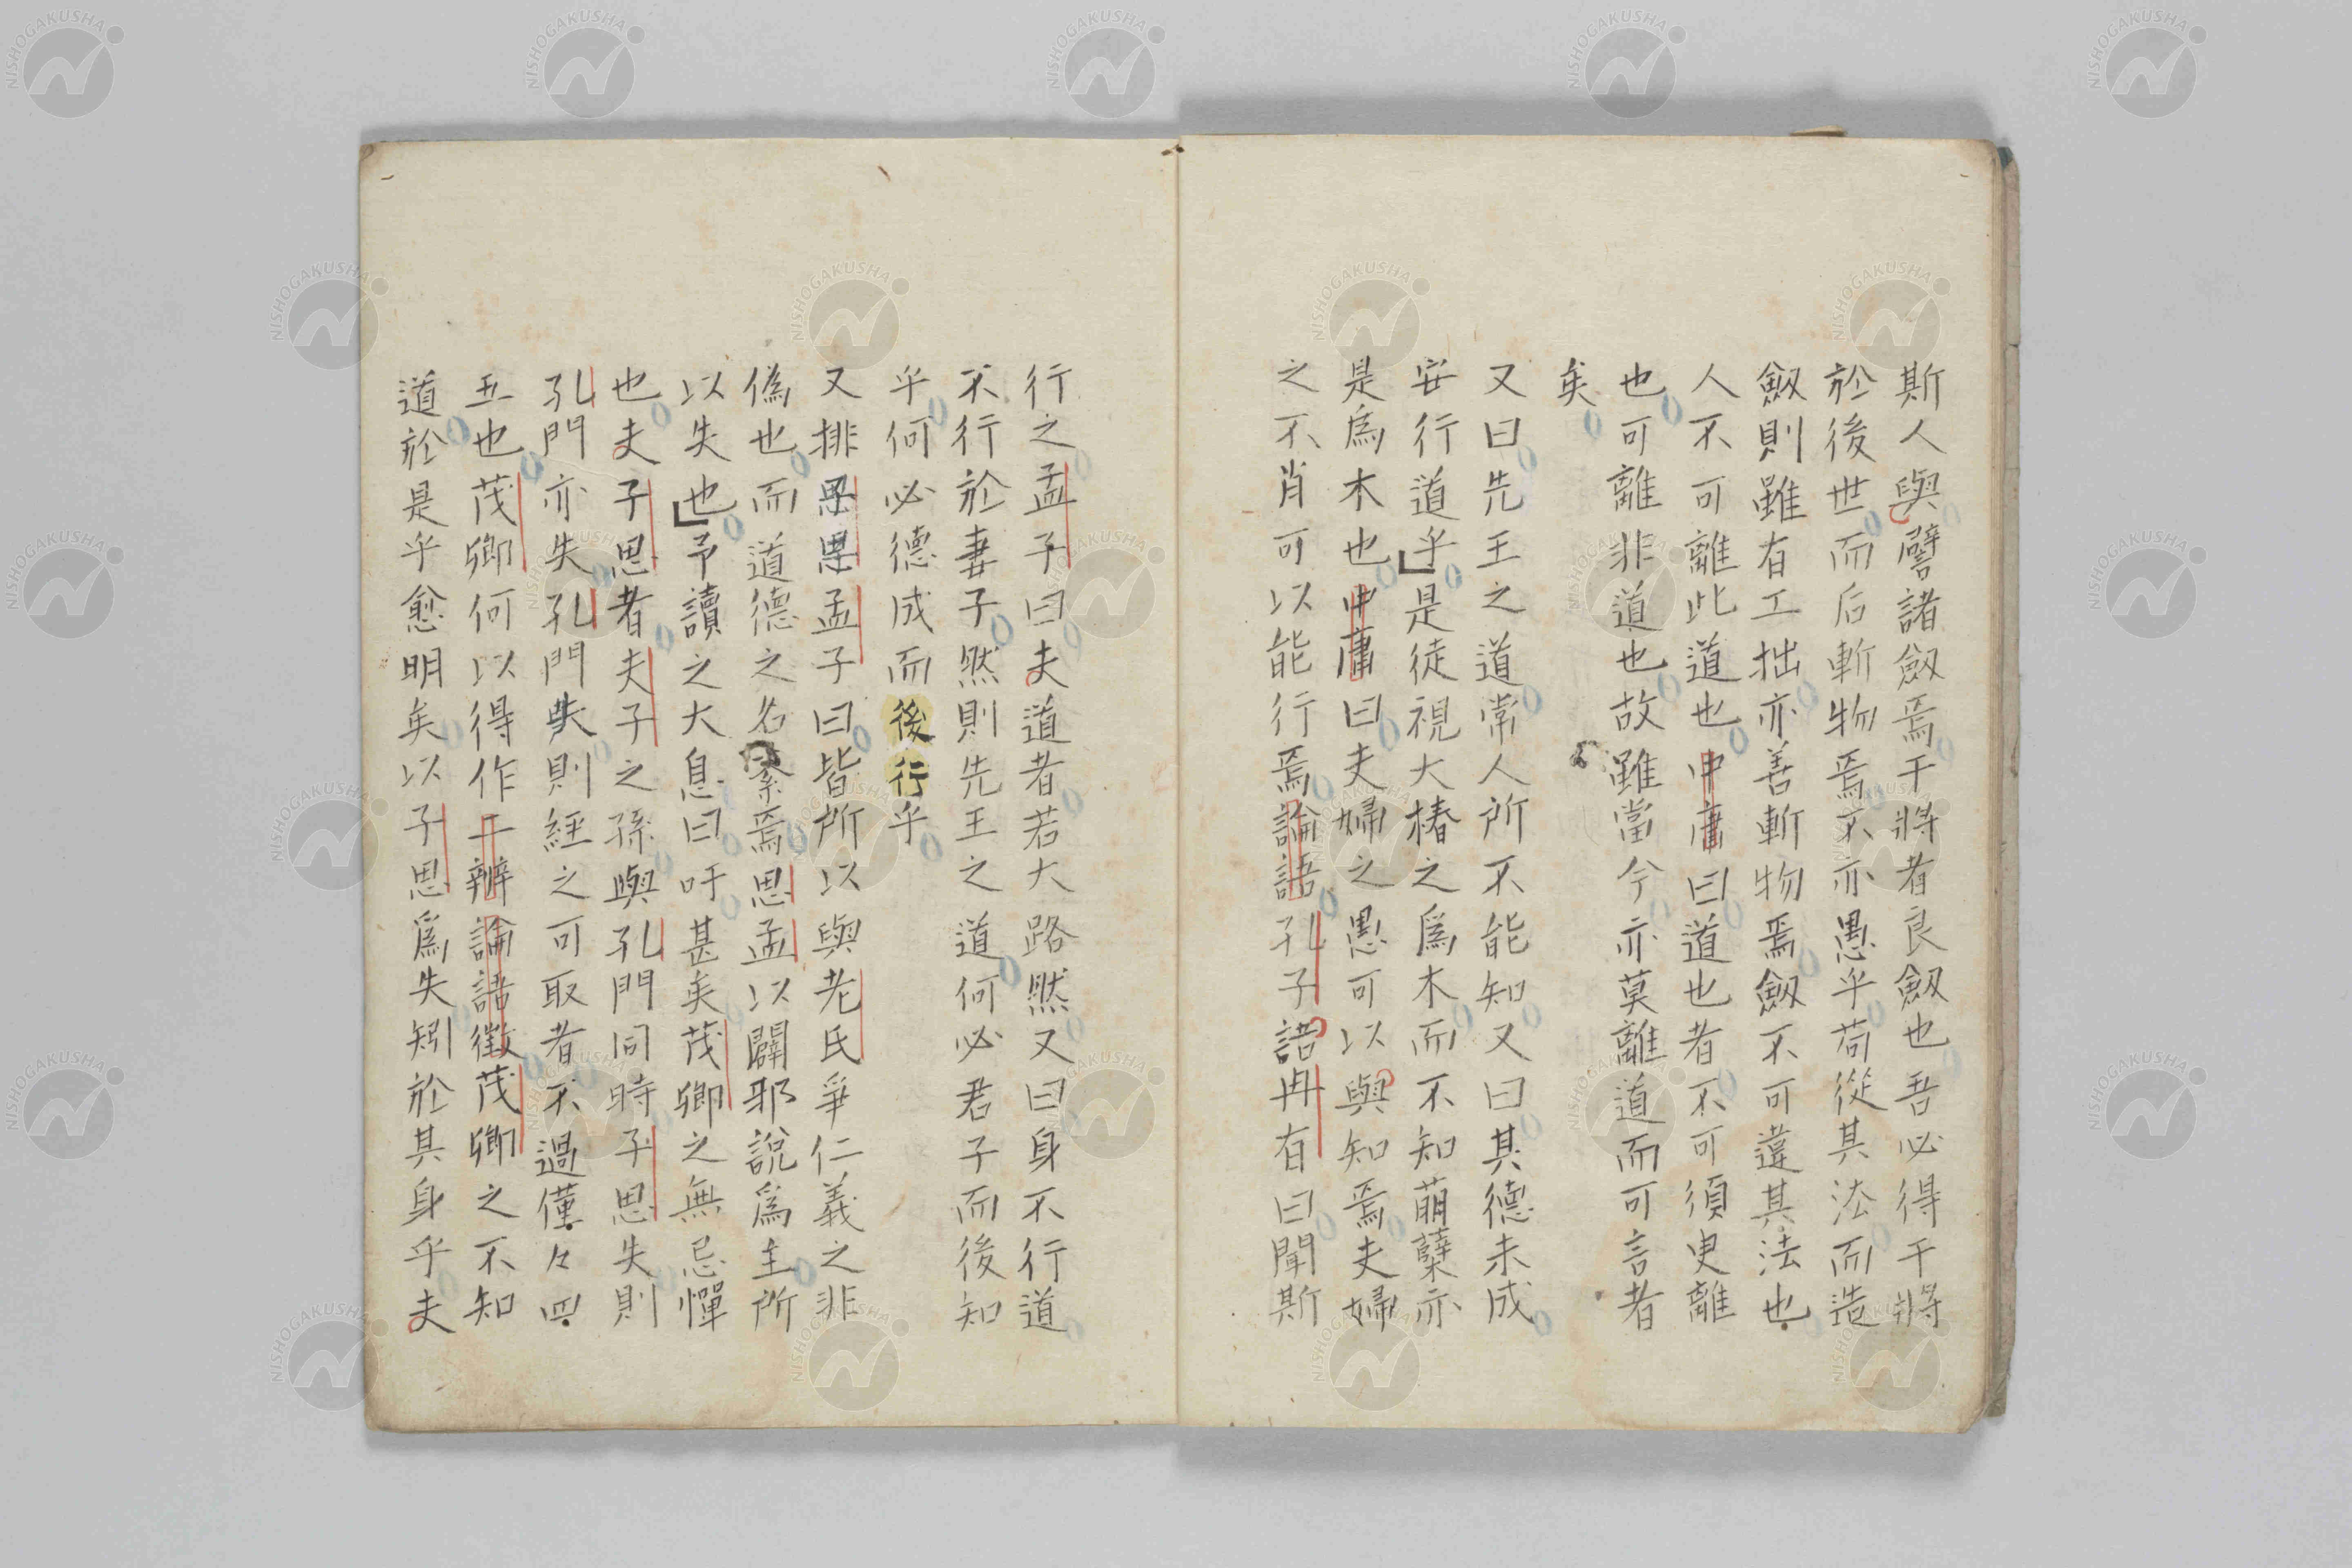 斯人與譬諸劔焉干將者良劔也吾必得干將
於後世而后斬物焉不亦愚乎苟從其法而造
劔則雖有工拙亦善斬物焉劔不可違其法也
人不可離此道也中庸曰道也者不可須臾離
也可離非道也故雖當今亦莫離道而可言者
矣
又曰先王之道常人所不能知又曰其德未成
安行道乎是徒視大椿之爲木而不知萌蘖亦
是爲木也中庸曰夫婦之愚可以與知焉夫婦
之不肖可以能行焉論語孔子語冉有曰聞斯
行之孟子曰夫道者若大路然又曰身不行道
不行於妻子然則先王之道何必君子而後知
乎何必德成而後行乎
又排思孟子曰皆所以與老氏爭仁義之非
偽也而道德之名紊焉思孟以闢耶說爲主所
以失也予讀之大息曰吁甚矣茂卿之無忌憚
也夫子思者夫子之孫與孔門同時子思失則
孔門亦失孔門失則經之可取者不過僅々四
五也茂卿何以得作于辨論語徵茂卿之不知
道於是乎愈明矣以子思爲失矧於其身乎夫
NISHOGAKUSHA